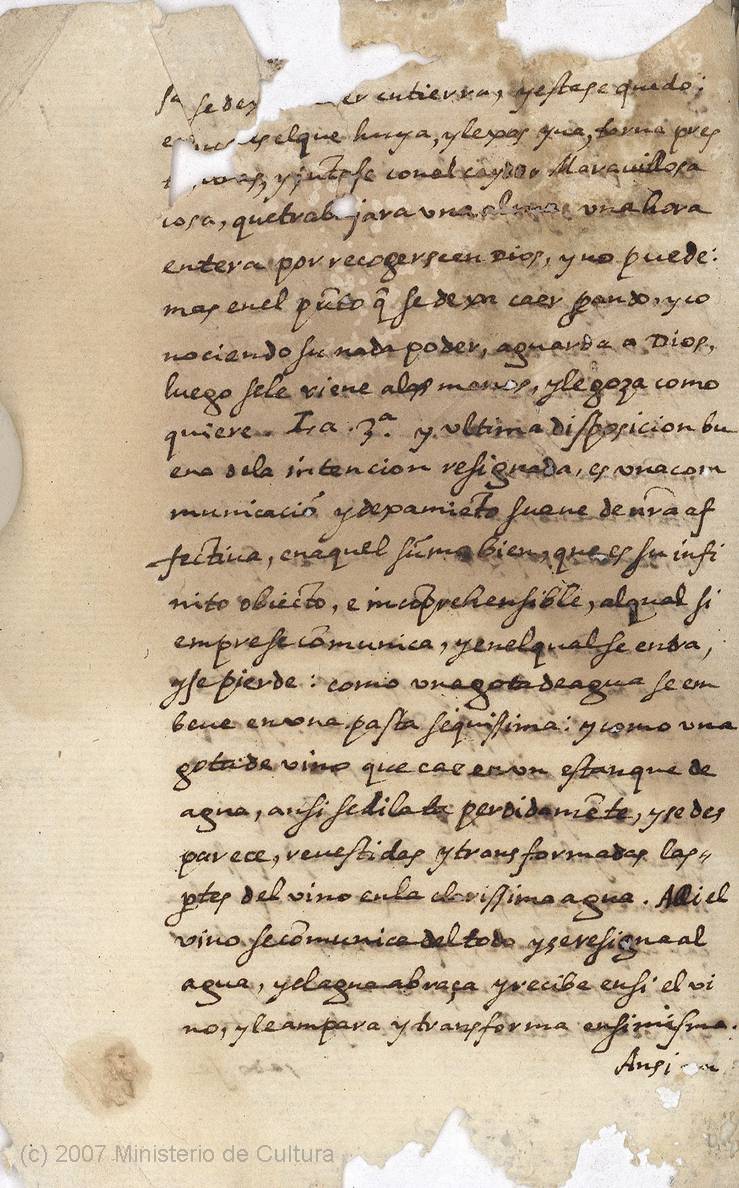 sa se dex er en tierra, y esta se quedo;
el que huya, y lexos yua, torna pres
y jũtase con el caydo. Marauillosa
cosa, que trabajara vna alma vna hora
entera por recogerse en Dios, y no puede:
mas en el pũto q̃ se dexa caer ꝑando, y co
nociendo su nada poder, aguarda a Dios,
luego se le viene a las manos, y le goza como
quiere. La .3ª. y vltima disposicion bu
ena de la intencion resignada, es vna com
municaciõ y dexamiẽto suaue de nr̃a af
fectiua, en aquel sũmo bien, que es su infi
nito obiecto, e incõprehensible, al qual si
empre se cõmunica, y en el qual se entra,
y se pierde: como vna gota de agua se em
beue en vna pasta sequissima: y como vna
gota de vino que cae en vn estanque de
agua, ansi se dilata perdidamẽte, y se des
parece, reuestidas y transformadas las
ꝑtes del vino en la clarissima agua. Alli el
vino se cõmunica del todo y se resigna al
agua, y el agua abraça y recibe en si el vi
no, y le ampara y transforma en si misma.
Ansi
(c) 2007 Ministerio de Cultura